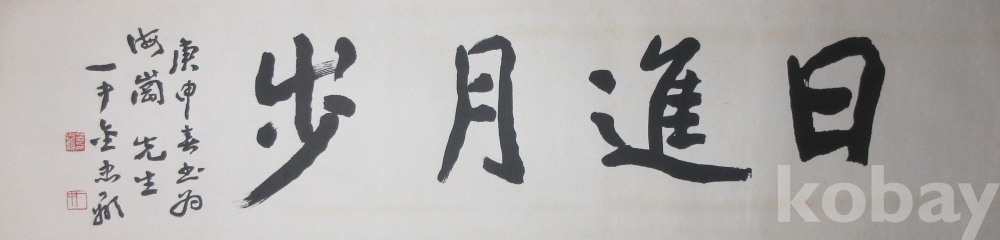 日進月步
庚申春書為
海崗先生
一中金忠顯
kobay